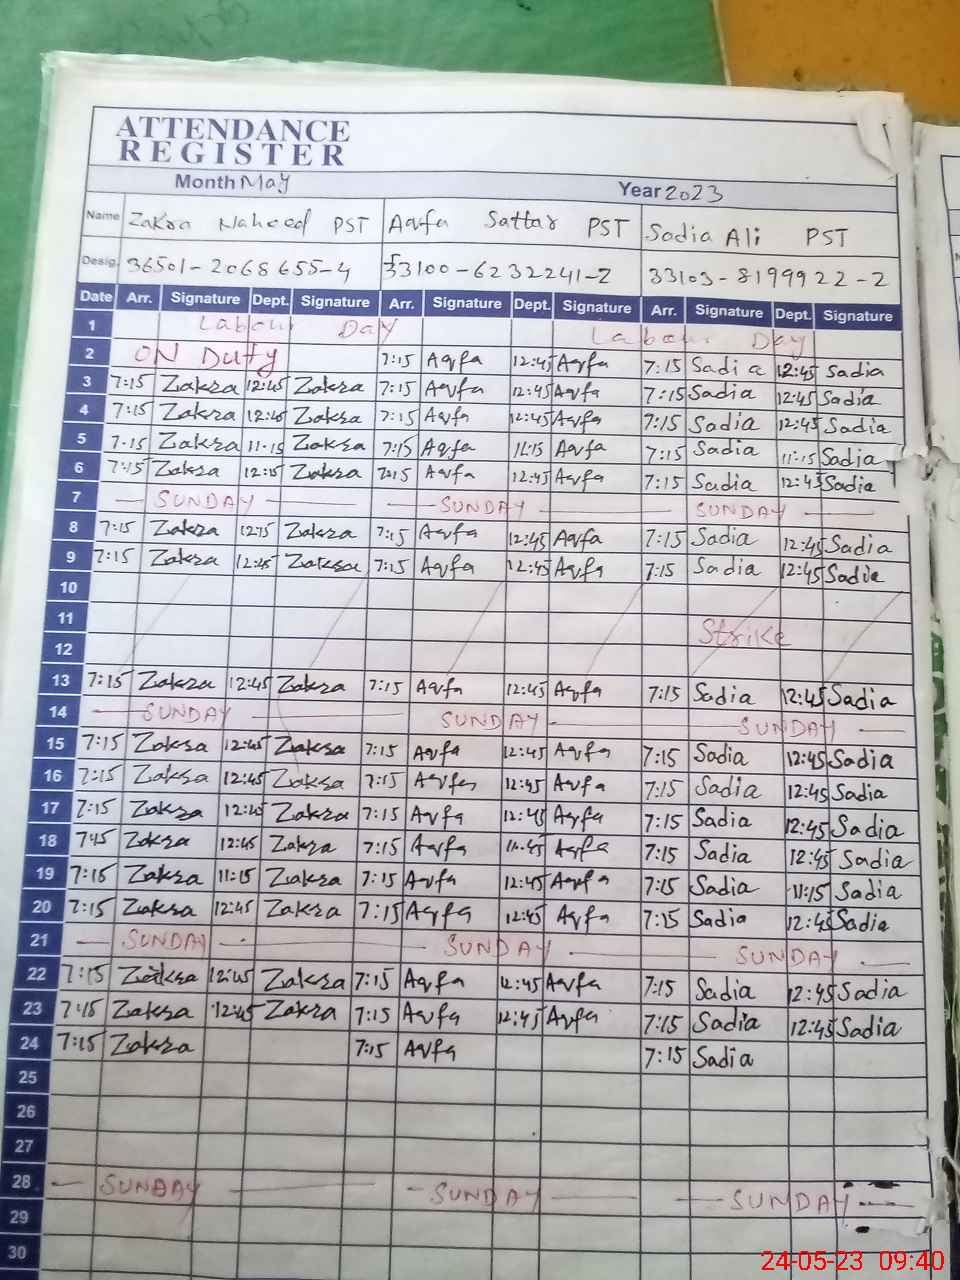 ATTENDANCE
REGISTER
Month May Year 2023
Name Zakra Naheed PST Aqfa Sattar PST Sadia Ali PST
Desig. 36501-2068655-4 33100-6232241-2 33103-8199922-2
Date Arr. Signature Dept. Signature Arr. Signature Dept. Signature Arr. Signature Dept. Signature
1 Labour Day Labour Day
2 ON Duty 7:15 Aqfa 12:45 Aqfa 7:15 Sadia 12:45 Sadia
3 7:15 Zakra 12:45 Zakra 7:15 Aqfa 12:45 Aqfa 7:15 Sadia 12:45 Sadia
4 7:15 Zakra 12:45 Zakra 7:15 Aqfa 12:45 Aqfa 7:15 Sadia 12:45 Sadia
5 7:15 Zakra 11:15 Zakra 7:15 Aqfa 11:15 Aqfa 7:15 Sadia 11:15 Sadia
6 7:15 Zakra Zakra 7:15 Aqfa 12:45 Aqfa 7:15 Sadia 12:45 Sadia
7 SUNDAY SUNDAY SUNDAY
8 7:15 Zakra Zakra 7:15 Aqfa 12:45 Aqfa 7:15 Sadia 12:45 Sadia
9 7:15 Zakra 12:45 Zakra 7:15 Aqfa 12:45 Aqfa 7:15 Sadia 12:45 Sadia
10
11 Strike
12
13 7:15 Zakra 12:45 Zakra 7:15 Aqfa 12:45 Aqfa 7:15 Sadia 12:45 Sadia
14 SUNDAY SUNDAY SUNDAY
15 7:15 Zakra 12:45 Zakra 7:15 Aqfa 12:45 Aqfa 7:15 Sadia 12:45 Sadia
16 7:15 Zakra 12:45 Zakra 7:15 Aqfa 12:45 Aqfa 7:15 Sadia 12:45 Sadia
17 7:15 Zakra 12:45 Zakra 7:15 Aqfa 12:45 Aqfa 7:15 Sadia 12:45 Sadia
18 Zakra 12:45 Zakra 7:15 Aqfa Aqfa 7:15 Sadia 12:45 Sadia
19 7:15 Zakra 11:15 Zakra 7:15 Aqfa 12:45 Aqfa 7:15 Sadia 11:15 Sadia
20 7:15 Zakra 12:45 Zakra 7:15 Aqfa 12:45 Aqfa 7:15 Sadia 12:45 Sadia
21 SUNDAY SUNDAY SUNDAY
22 7:15 Zakra 12:45 Zakra 7:15 Aqfa 12:45 Aqfa 7:15 Sadia 12:45 Sadia
23 7:15 Zakra 12:45 Zakra 7:15 Aqfa 12:45 Aqfa 7:15 Sadia 12:45 Sadia
24 7:15 Zakra 7:15 Aqfa 7:15 Sadia
25
26
27
28 SUNDAY SUNDAY SUNDAY
29
30
24-05-23 09:40